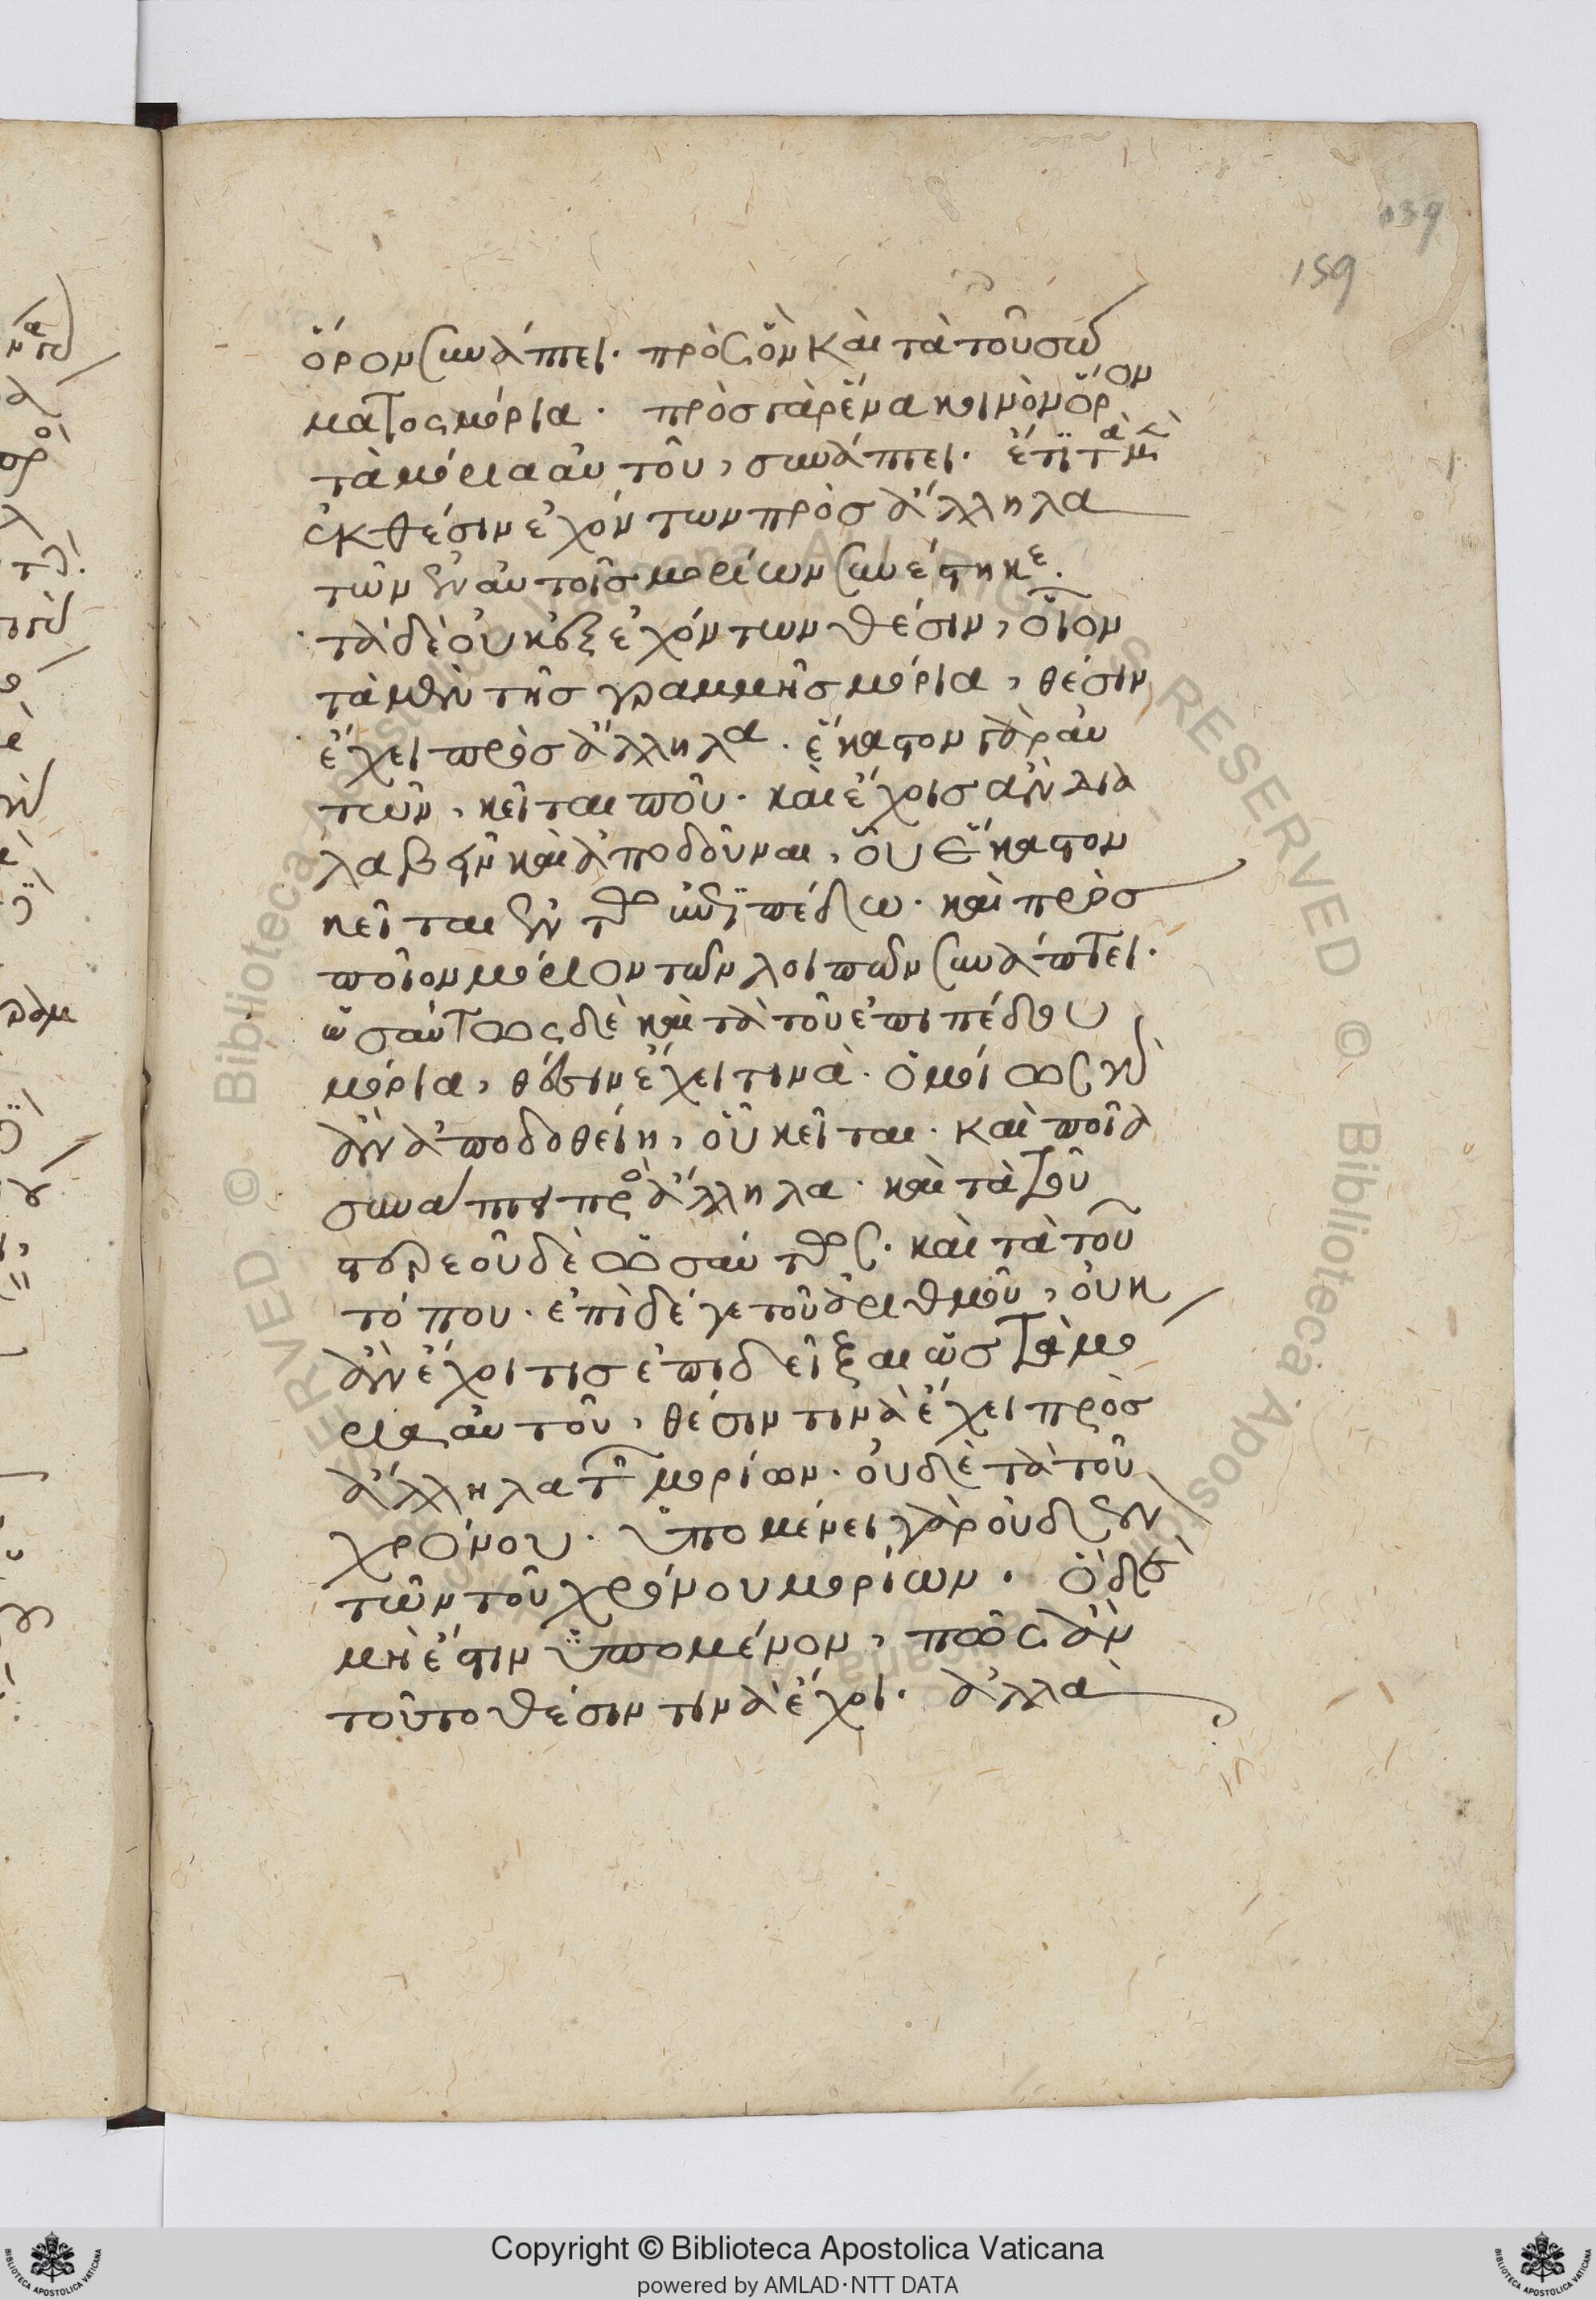 139
159
ὅρον συνάπτει. πρὸς ὃν καὶ τὰ τοῦ σώ
ματος μόρια. πρὸς γὰρ ἕνα κοινὸν ὅρον
τὰ μόρια αὐτοῦ, συνάπτει. ἔτι τὰ μὲν
ἐκ θέσιν ἐχόντων πρὸς ἄλληλα
τῶν ἐν αὐτοῖς μορίων συνέστηκε.
τὰ δὲ οὐκ ἐξ ἐχόντων θέσιν, οἷον
τὰ μὲν τῆς γραμμῆς μόρια, θέσιν
ἔχει πρὸς ἄλληλα. ἕκαστον γὰρ αὐ
τῶν, κεῖται που. καὶ ἔχοις ἂν δια
λαβεῖν καὶ ἀποδοῦναι, οὗ ἕκαστον
κεῖται ἐν τῷ ἐπιπέδω. καὶ πρὸς
ποῖον μόριον τῶν λοιπῶν συνάπτει.
ὡσαύτως δὲ καὶ τὰ τοῦ ἐπιπέδου
μόρια, θέσιν ἔχει τινὰ. ὁμοίως γὰρ
ἂν ἀποδοθείη, οὗ κεῖται. καὶ ποῖα
συνάπτει πρὸς ἄλληλα. καὶ τὰ τοῦ
στερεοῦ δὲ ὡσαύτως. καὶ τὰ τοῦ
τόπου. ἐπὶ δέ γε τοῦ ἀριθμοῦ, οὐκ
ἂν ἔχοι τις ἐπιδεῖξαι ὡς τὰ μό
ρια αὐτοῦ, θέσιν τινὰ ἔχει πρὸς
ἄλληλα τῶν μορίων. οὐδὲ τὰ τοῦ
χρόνου. ὑπομένει γὰρ οὐδὲν
τῶν τοῦ χρόνου μορίων. ὃ δὲ
μὴ ἔστιν ὑπομένον, πῶς ἂν
τοῦτο θέσιν τινὰ ἔχοι. ἀλλὰ
Copyright © Biblioteca Apostolica Vaticana
powered by AMLAD·NTT DATA